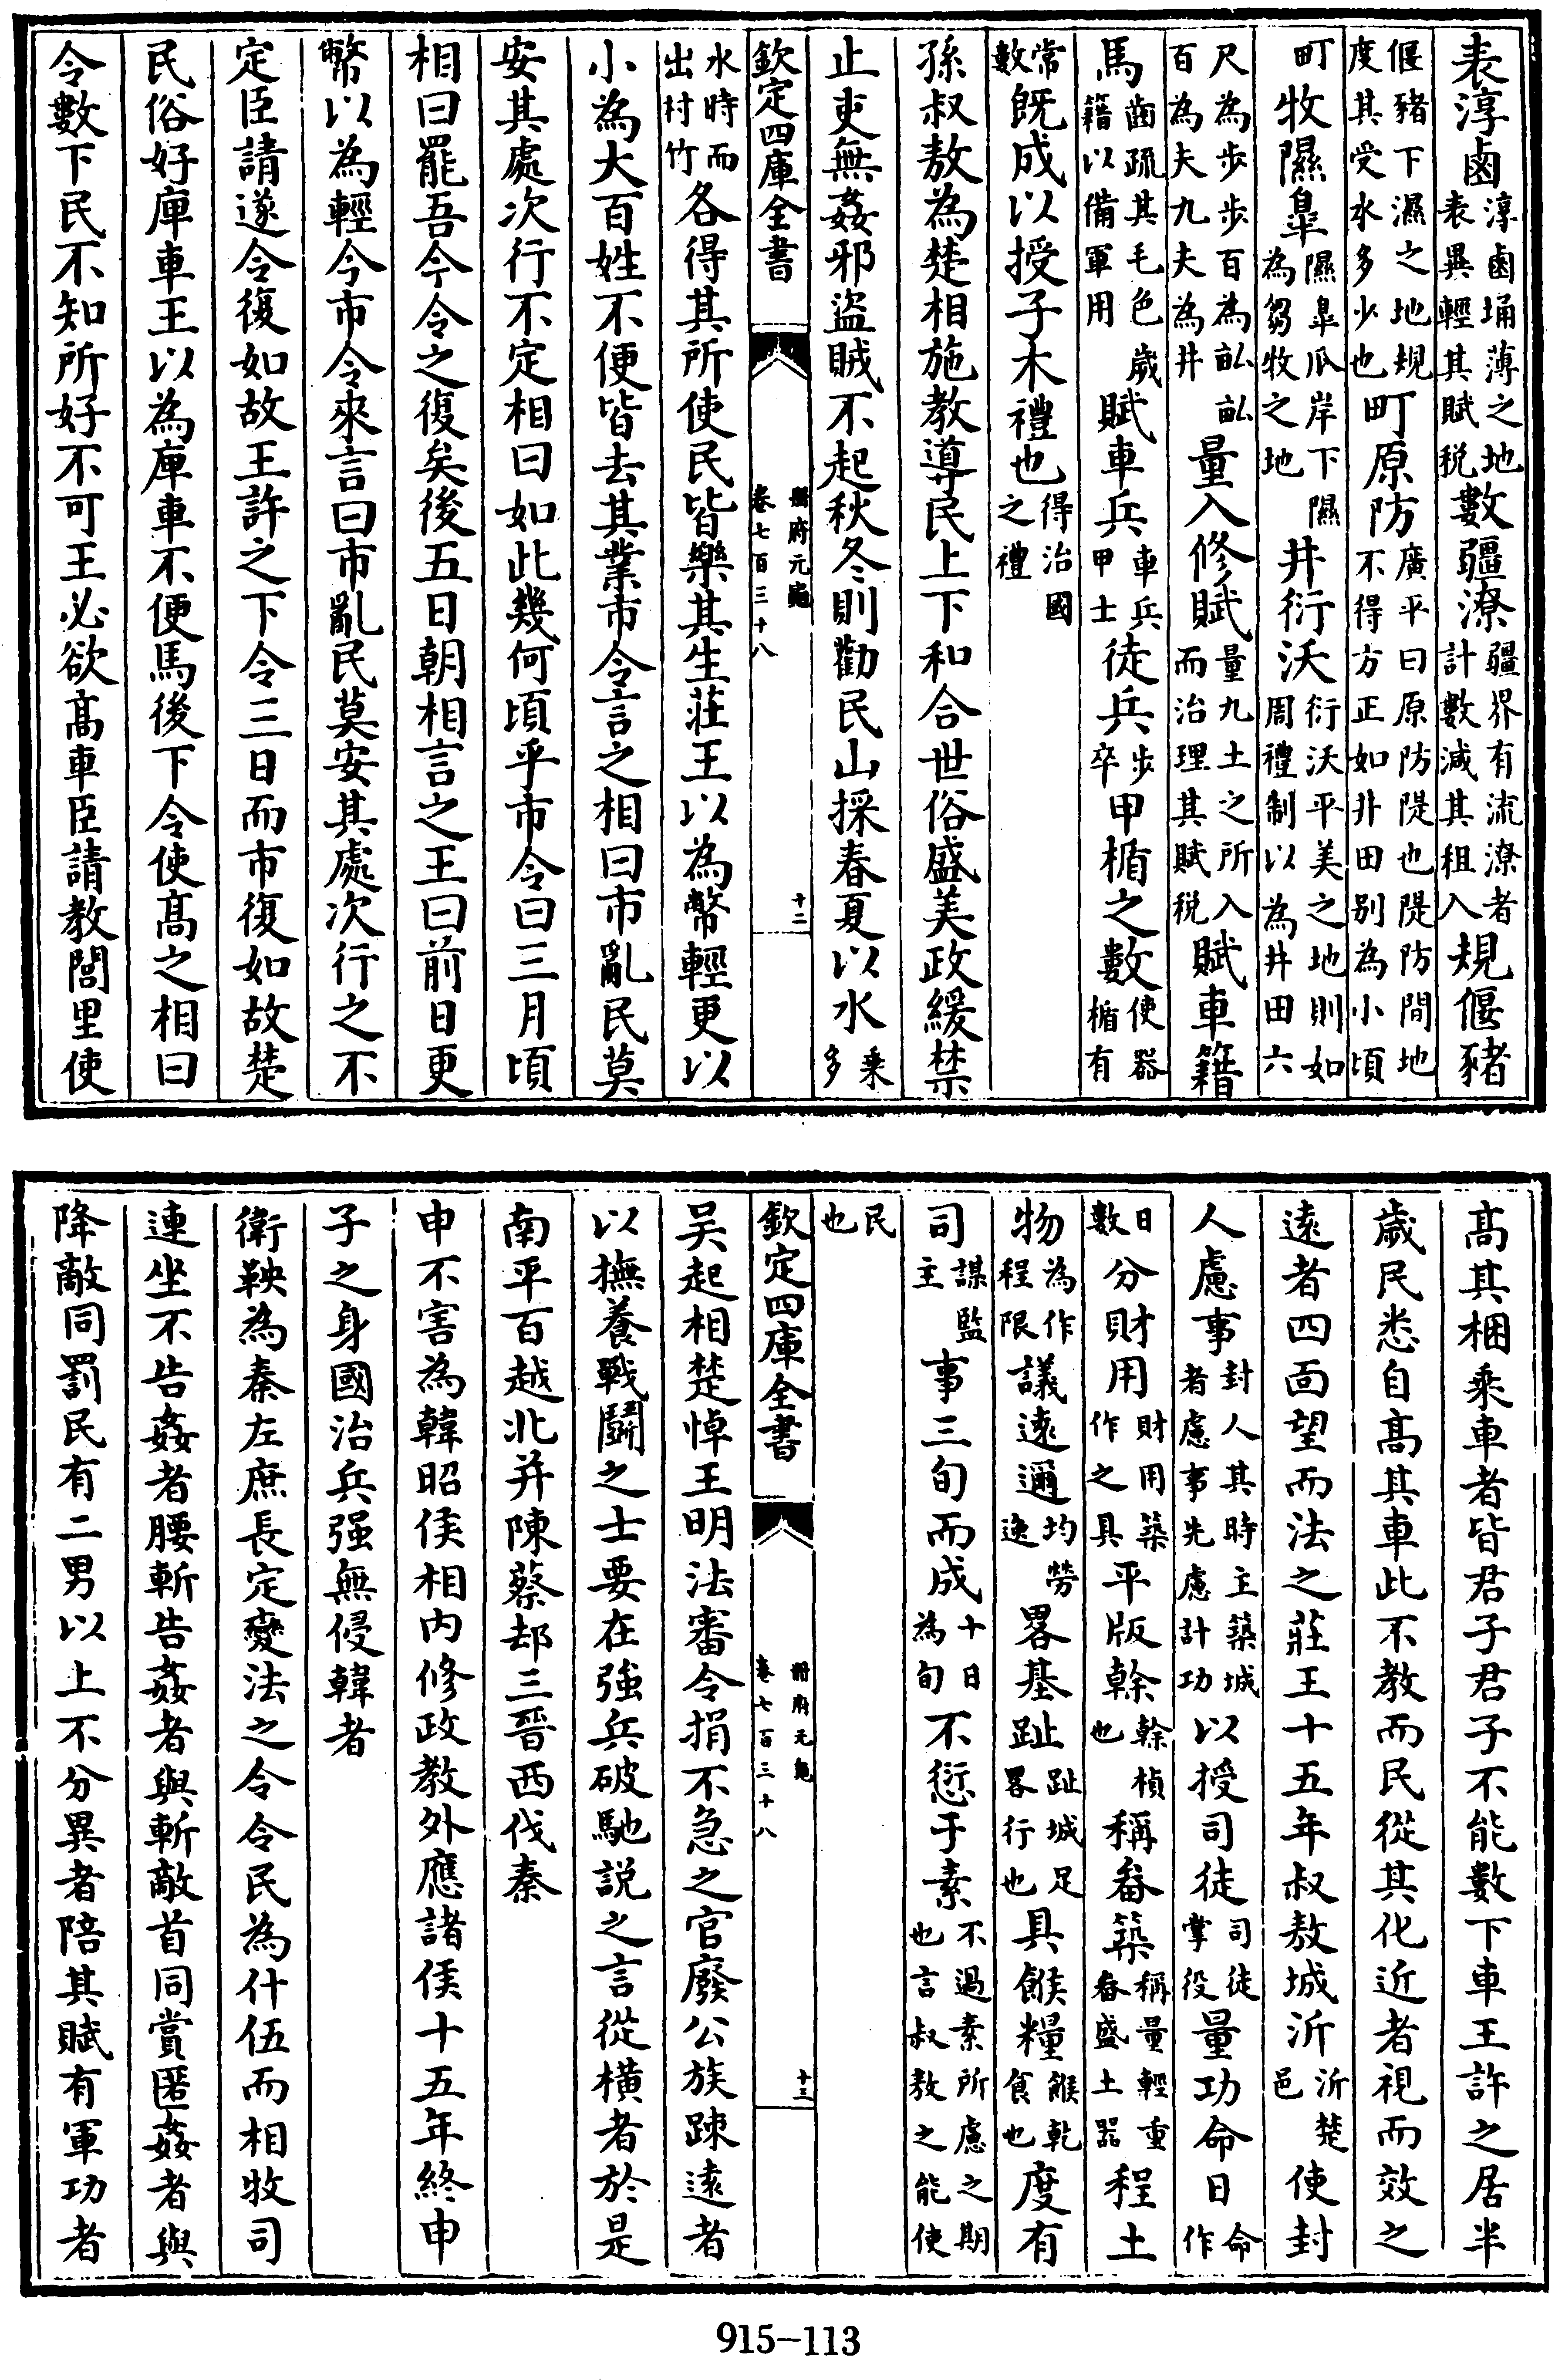 表淳鹵淳鹵埆薄之地表異輕其賦稅數疆潦疆界有流潦者計數減其租入規偃豬
偃豬下濕之地規度其受水多少也町原防廣平曰原防隄也隄防間地不得方正如井田别為小頃
町牧隰臯隰臯瓜岸下隰為芻牧之地井衍沃衍沃平美之地則如周禮制以為井田六
尺為步步百為畆畆百為夫九夫為井量入修賦量九土之所入而治理其賦稅賦車籍
馬齒疏其毛色歲籍以備軍用賦車兵車兵甲士徒兵步卒甲楯之數使器楯有
常數既成以授子木禮也得治國之禮
孫叔敖為楚相施教導民上下和合世俗盛美政緩禁
止吏無姦邪盜賊不起秋冬則勸民山採春夏以水乘多
欽定四庫全書 冊府元龜 卷七百三十八 十二
水時而出材竹各得其所使民皆樂其生莊王以為幣輕更以
小為大百姓不便皆去其業市令言之相曰市亂民莫
安其處次行不定相曰如此幾何頃乎市令曰三月頃
相曰罷吾今令之復矣後五日朝相言之王曰前日更
幣以為輕今市令來言曰市亂民莫安其處次行之不
定臣請遂令復如故王許之下令三日而市復如故楚
民俗好庳車王以為庳車不便馬後下令使髙之相曰
令數下民不知所好不可王必欲髙車臣請教閭里使
髙其梱乘車者皆君子君子不能數下車王許之居半
歲民悉自髙其車此不教而民從其化近者視而效之
遠者四面望而法之莊王十五年叔敖城沂沂楚邑使封
人慮事封人其時主築城者慮事先慮計功以授司徒司徒掌役量功命日命作
日數分財用財用築作之具平版榦榦楨也稱畚築稱量輕重畚盛土器程土
物為作程限議遠邇均勞逸畧基趾趾城足畧行也具餱糧餱乾食也度有
司謀監主事三旬而成十日為旬不愆于素不過素所慮之期也言叔敖之能使
民也
欽定四庫全書 冊府元龜 卷七百三十八 十三
吴起相楚悼王明法審令捐不急之官廢公族踈遠者
以撫養戰鬬之士要在強兵破馳説之言從橫者於是
南平百越北并陳蔡却三晉西伐秦
申不害為韓昭侯相内修政教外應諸侯十五年終申
子之身國治兵强無侵韓者
衛鞅為秦左庶長定變法之令令民為什伍而相牧司
連坐不告姦者腰斬告姦者與斬敵首同賞匿姦者與
降敵同罰民有二男以上不分異者陪其賦有軍功者
915-113